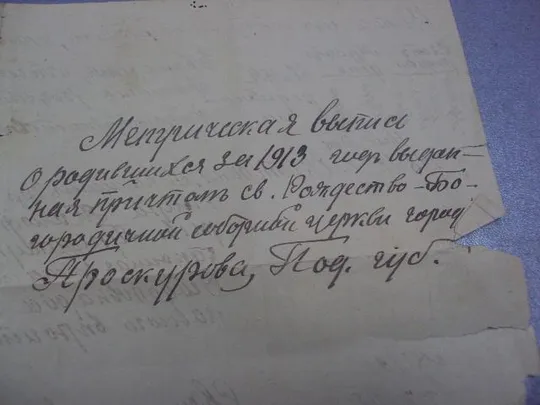 Метрическая выпись
о родившихся за 1913 год выдан-
ная причтом св. Рождество-Бо-
городичной соборной церкви город
Проскурова, Под. губ.